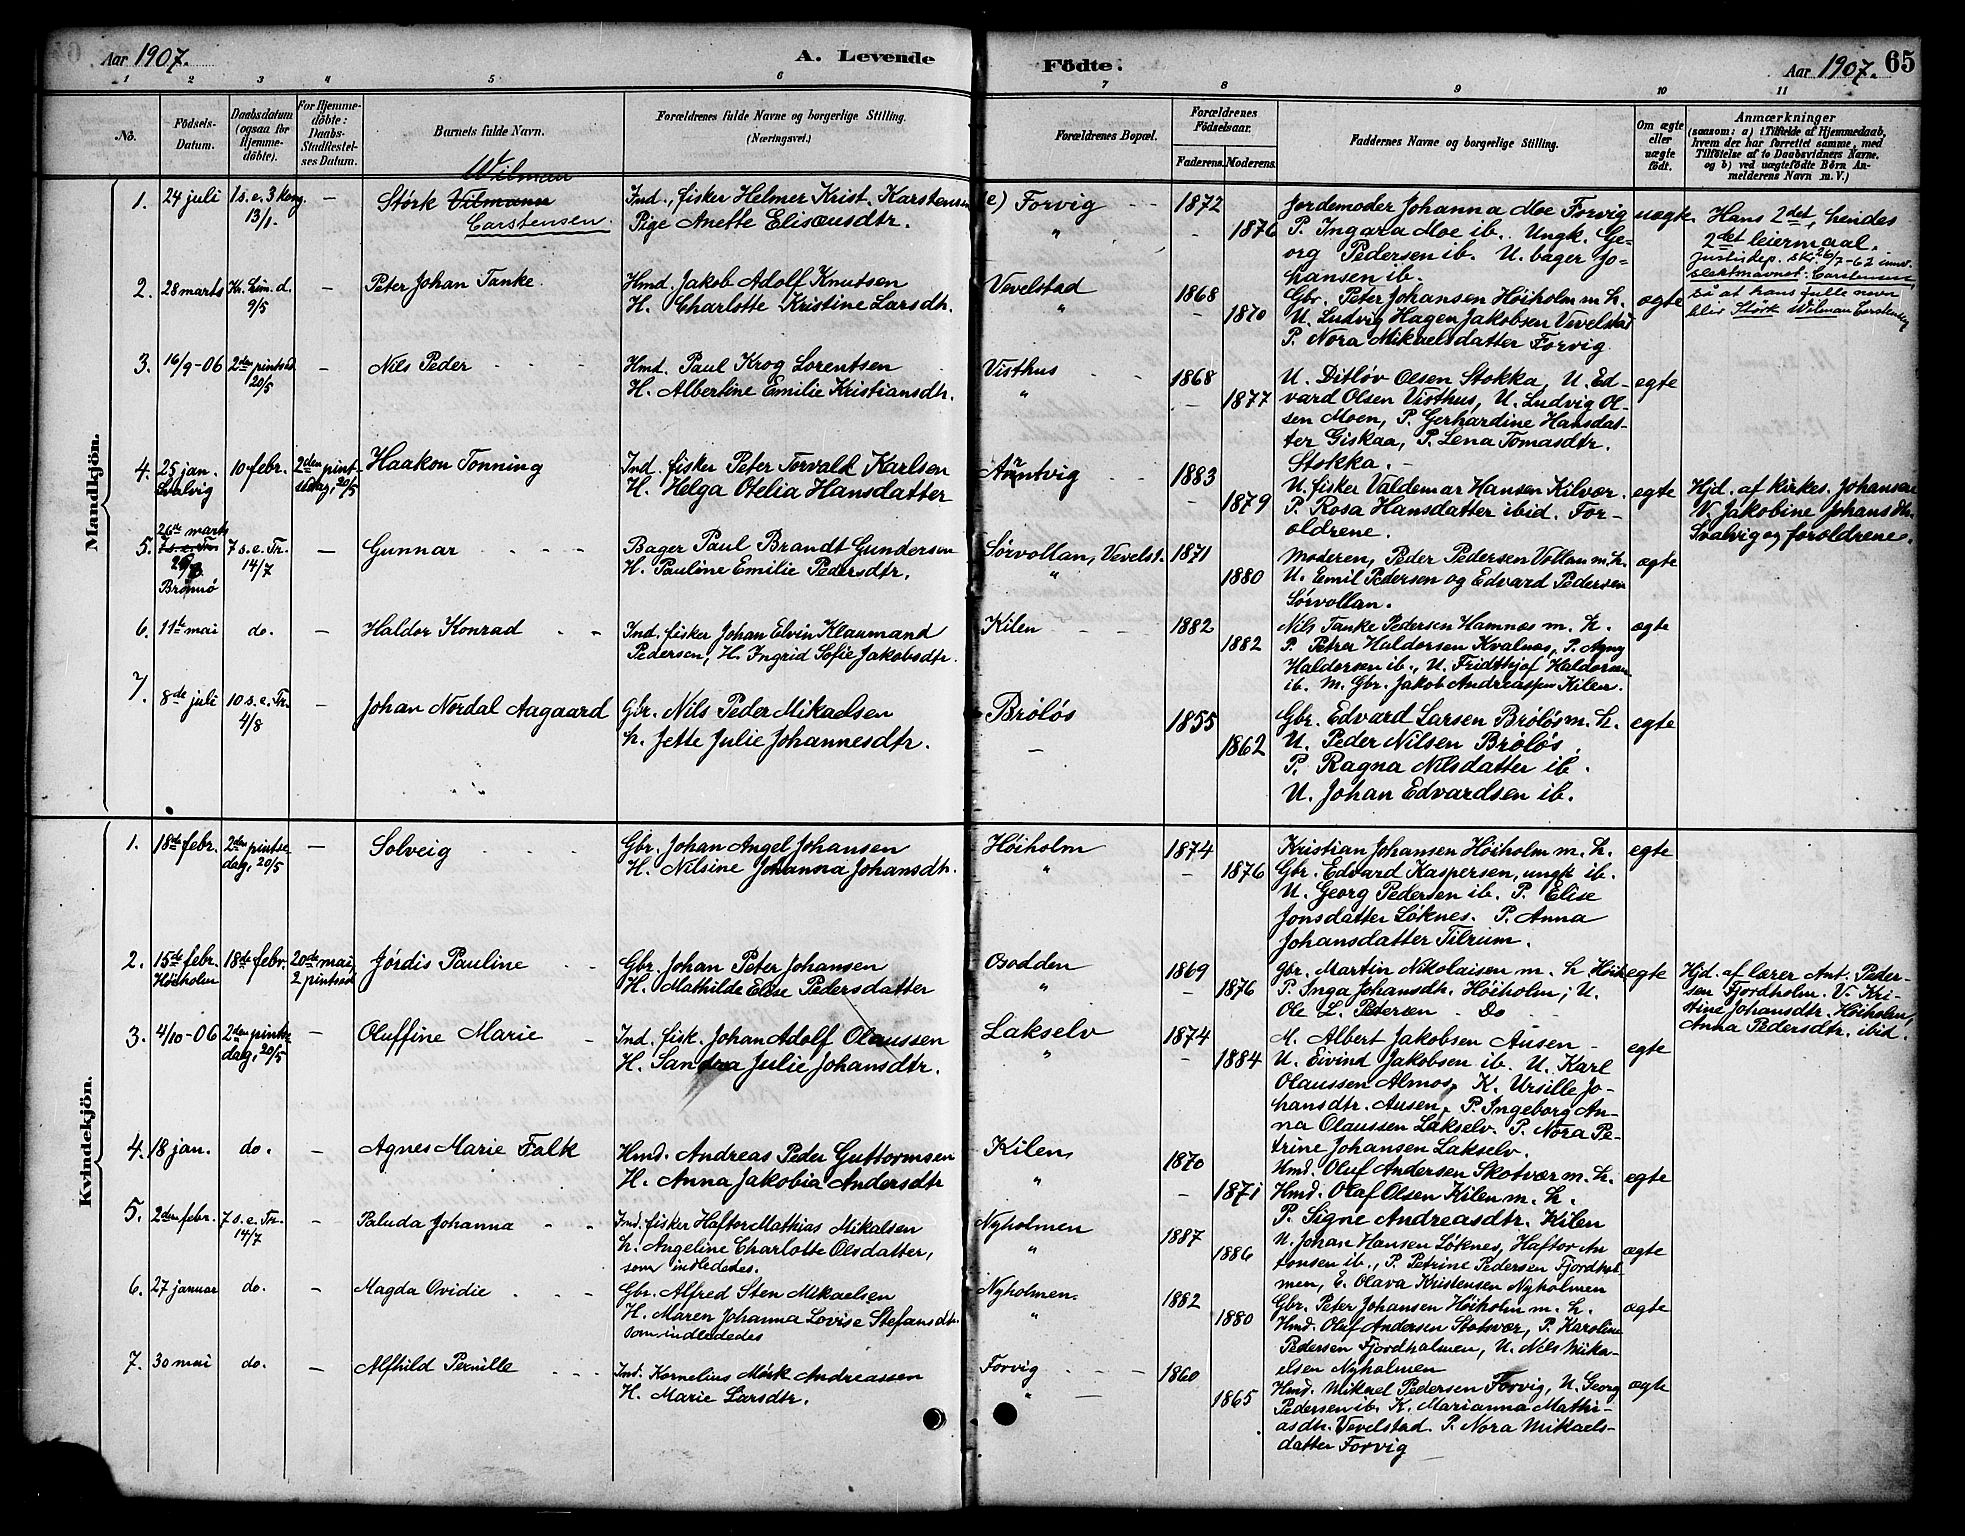 Aar 1907.
A. Levende
Födte.
Aar 1907.
65
1 2 3 4 5 6 7 8 9 10 11
No.
Födsels-
Datum.
Daabsdatum
(ogsaa for
Hjemme-
döbte).
For Hjemme-
döbte:
Daabs-
Stadfæstel-
ses Datum.
Barnets fulde Navn.
Forældrenes fulde Navne og borgerlige Stilling.
(Næringsvei.)
Forældrenes Bopæl.
Forældrenes
Födselsaar.
Faderens. Moderens.
Faddernes Navne og borgerlige Stilling.
Om ægte
eller
uægte
födt.
Anmærkninger
(saasom: a) i Tilfælde af Hjemmedaab,
hvem der har forrettet samme, med
Tilföielse af to Daabsvidners Navne,
og b) ved uægtefödte Börn An-
melderens Navn m. V.)
Mandkjön.
1.
24 juli
1 s. e. 3 kong
13/1.
—
Wilman
Störk Vilmann
Carstensen.
Ind., fisker Helmer Krist. Karstensen
Pige Anette Eliseusdtr.
(e) Forvig
"
1872
1876
Jordemoder Johanna Moe Forvig
P. Ingara Moe ib. Ungk. Ge-
org Pedersen ib. U. bager Jo-
hansen ib.
uægte
Hans 2det, hendes
2det leiermaal.
Justisdep. skr. 26/7-62
slektsnavnet: Carstensen,
så at hans fulle navn
blir Störk Wilman Carstensen
2.
28 marts
Kr. him. d.
9/5
—
Peter Johan Tanke
Hmd. Jakob Adolf Knutsen
H. Charlotte Kristine Larsdtr.
Vevelstad
"
1868
1870
Gbr. Peter Johansen Höiholm m. h.
U. Ludvig Hagen Jakobsen Vevelstad
P. Nora Mikaelsdatter Forvig
ægte
3.
16/9-06
2den pintsd.
20/5
—
Nils Peder
Hmd. Paul Krog Lorentsen
H. Albertine Emilie Kristiansdtr.
Visthus
"
1868
1877
U. Ditlöv Olsen Stokka, U. Ed-
vard Olsen Visthus, U. Ludvig Ol-
sen Moen, P. Gerhardine Hansdat-
ter Giskaa, P. Lena Tomasdtr.
Stokka.
egte
4.
25 jan.
Svalvig
10 febr.
2den pint-
sedag, 20/5
Haakon Tonning
Ind. fisker Peter Torvald Karlsen
H. Helga Otelia Hansdatter
Aarntvig
1883
1879
U. fisker Valdemar Hansen Kilvær.
P. Rosa Hansdatter ibid. For-
oldrene.
egte
Hjd. af kirkes. Johansen
V. Jakobine Johansdtr.
Svalvig og foroldrene.
5.
26de marts
7 s. e. Tr.
Brönnö
7 s. e. Tr.
14/7
—
Gunnar
Bager Paul Brandt Gundersen
H. Pauline Emilie Pedersdtr.
Sörvollan, Vevelst.
"
1871
1880
Moderen, Peder Pedersen Vollan m. h.
U. Emil Pedersen og Edvard Pedersen
Sörvollan.
ægte
6.
11te mai
do.
—
Haldor Konrad
Ind. fisker Johan Elvin Klaumand
Pedersen, H. Ingrid Sofie Jakobsdtr.
Kilen
1882
1882
Nils Tanke Pedersen Hamnæs m. h.
P. Petra Haldorsen Kvalnæs, P. Agny
Haldorsen ib., U. Fridthjof Haldorsen
ib. M. Gbr. Jakob Andreassen Kilen.
ægte
7.
8de juli
10 s. e. Tr.
4/8
—
Johan Nordal Aagaard
Gbr. Nils Peder Mikaelsen
h. Jette Julie Johannesdtr.
Brölös
—
1855
1862
Gbr. Edvard Larsen Brölös m. h.
U. Peder Nilsen Brölös.
P. Ragna Nilsdatter ib.
U. Johan Edvardsen ib.
egte
Kvindekjön.
1.
18de febr.
2den pintse-
dag, 20/5
—
Solveig
Gbr. Johan Angel Johansen
H. Nilsine Johanna Johansdtr.
Höiholm
"
1874
1876
Kristian Johansen Höiholm m. h.
Gbr. Edvard Kaspersen, ungk ib.
U. Georg Pedersen ib. P. Elise
Jonsdatter Löknes. P. Anna
Johansdatter Tilrum.
egte
2.
15de febr.
Höiholm
18de febr.
20de mai,
2 pintsed.
Jördis Pauline
Gbr. Johan Peter Johansen
H. Mathilde Elise Pedersdatter
Osodden
"
1869
1876
Gbr. Martin Nikolaisen m. h Höih.
P. Inga Johansdtr. Höiholm; U.
Ole L. Petersen - Do
egte
Hjd. af lærer Ant. Peder-
sen Fjordholm. V. Kri-
stine Johansdtr. Höiholm,
Anna Pedersdtr. ibid.
3.
4/10-06
2den pintse-
dag, 20/5
—
Oluffine Marie
Ind. fisk. Johan Adolf Olaussen
H. Sandra Julie Johansdtr.
Lakselv
"
1874
1884
M. Albert Jakobsen Ausen
U. Eivind Jakobsen ib. U. Karl
Olaussen Almos, K. Ursille Jo-
hansdtr. Ausen, P. Ingeborg An-
na Olaussen Lakselv. P. Nora Pe-
trine Johansen Lakselv.
egte
4.
18 jan.
do.
—
Agnes Marie Falk
Hmd. Andreas Peder Guttormsen
H. Anna Jakobia Andersdtr
Kilen
"
1870
1871
Hmd. Oluf Andersen Skotvær m. h.
Hmd. Olaf Olsen Kilen m. h.
P. Signe Andreasdtr. Kilen
egte
5.
2den febr.
7 s. e. Tr.
14/7
—
Paluda Johanna
Ind. fisker Haftor Mathias Mikalsen
h. Angeline Charlotte Olsdatter,
som indledes.
Nyholmen
"
1887
1886
U. Johan Hansen Löknes, Haftor An
tonsen ib., P. Petrine Pedersen Fjordhol-
men, E. Olava Kristensen Nyholmen
ægte
6.
27 januar
do.
—
Magda Ovidie
Gbr. Alfred Sten Mikaelsen
H. Maren Johanna Lovise Stefansdtr.
som indledes
Nyholmen
"
1882
1880
Gbr. Peter Johansen Höiholm m. h.
Hmd. Oluf Andersen Stotvær, P. Karoline
Pedersen Fjordholmen, U. Nils Mika-
elsen Nyholmen
ægte
7.
30 mai
do.
—
Alfhild Pernille
Ind. Kornelius Mörk Andreassen
H. Marie Larsdtr.
Forvig
"
1860
1865
Hmd. Mikael Pedersen Forvig, U. Georg
Pedersen ib. K. Marianna Mathi-
asdtr. Vevelstad. P. Nora Mikaels-
datter Forvig
ægte